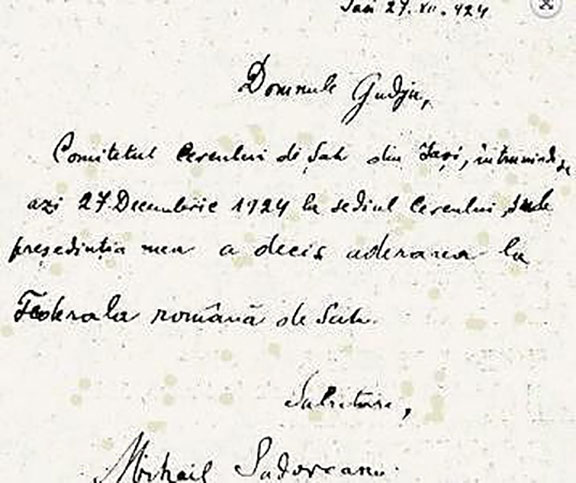 Iași 27.XII.924
Domnule Gudju,
Comitetul Cercului de Șah din Iași, întrunindu-se
azi 27 Decembrie 1924 la sediul Cercului, sub
președinția mea a decis aderarea la
Federala română de Șah.
Salutări,
Mihail Sadoveanu.